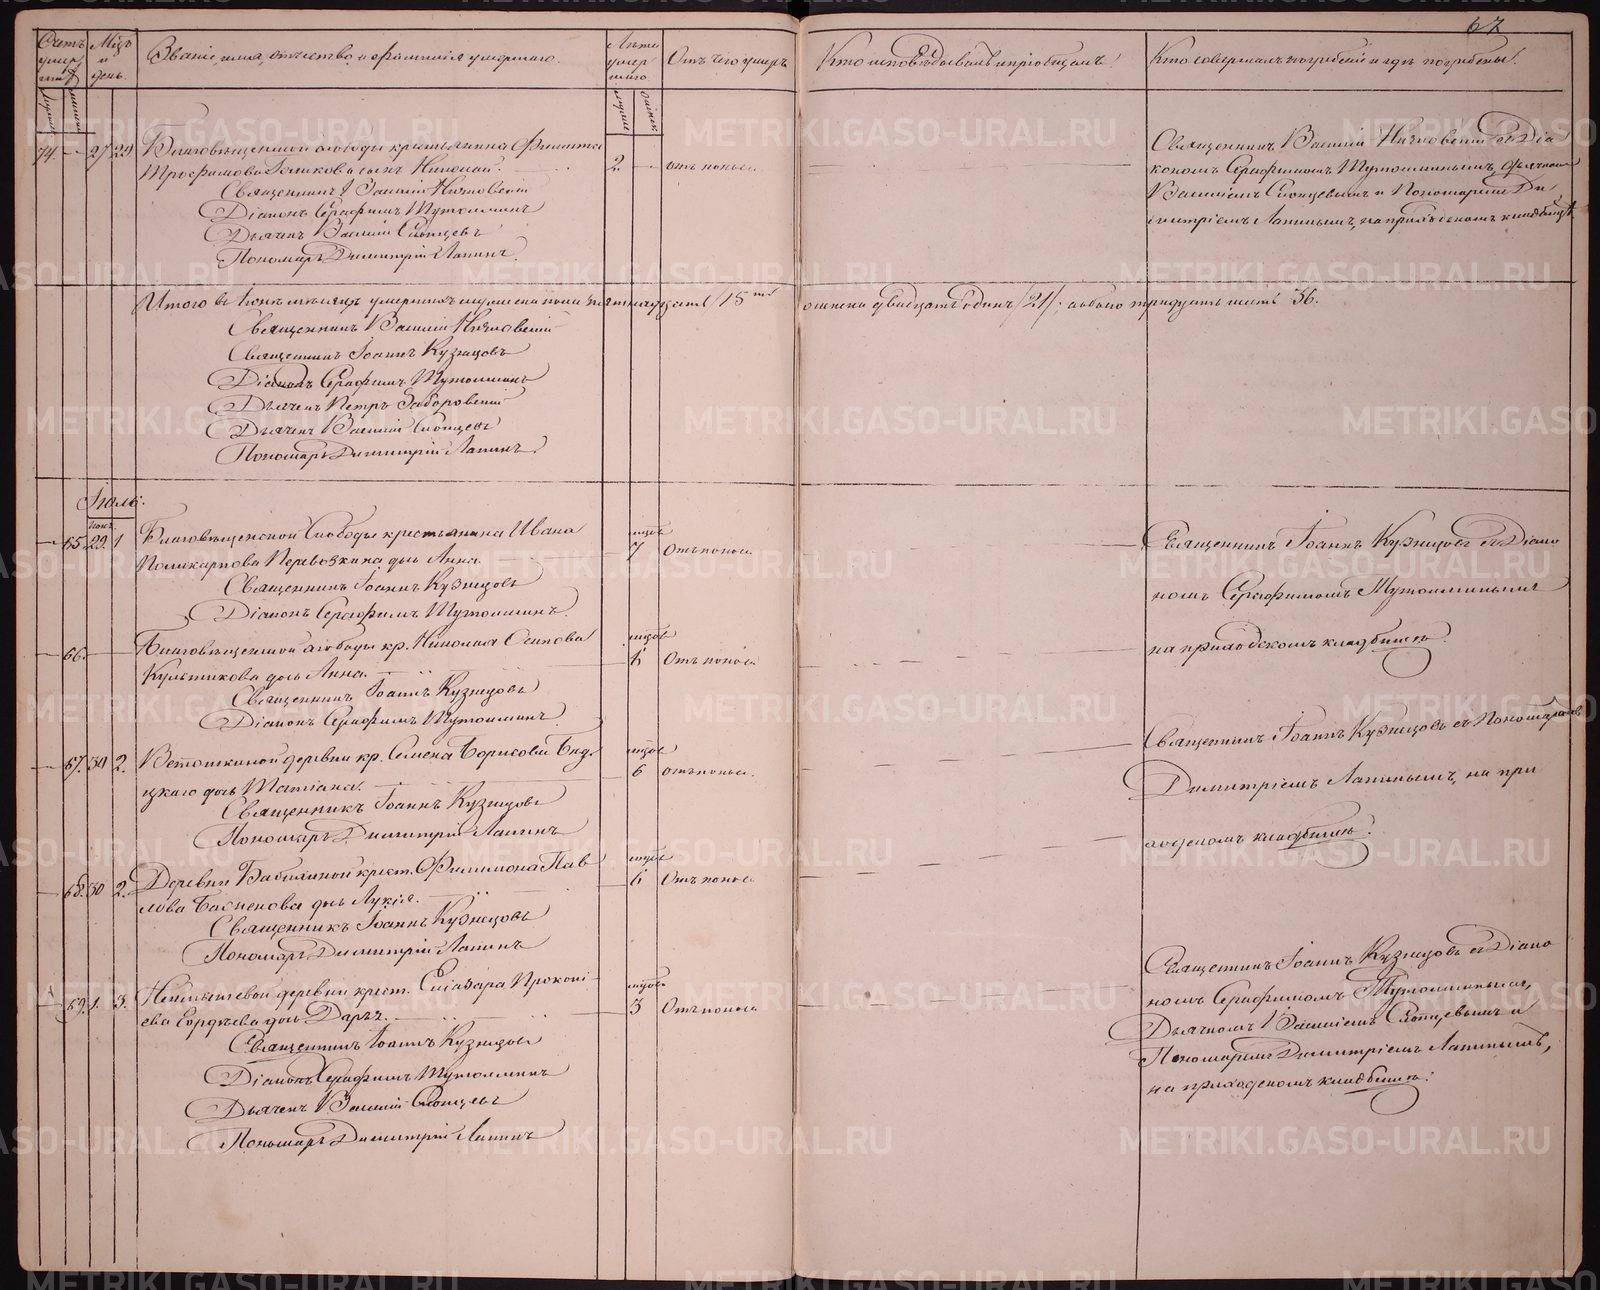 67
Счетъ умер шихъ
Мѣцъ и день.
Званіе, имя, отчество и фамилія умершаго.
Лѣта умер шаго
Отъ чего умеръ
Кто исповѣдывалъ и пріобщалъ?
Кто совершалъ погребеніе и гдѣ погребены?
74. 27 29 Благовѣщенской слободы крестьянина Филиппа
Трофимова сынъ Николай.
2. отъ поноса.
Священникъ Василій
Діаконъ Серафимъ Тутолминъ
Дьячекъ Василій Словцевъ
Пономарь Димитрій Лапинъ.
Священникъ Василій съ Діа
кономъ Серафимомъ Тутолминымъ, дьячкомъ
Василіемъ Словцевымъ и Пономаремъ Ди
митріемъ Лапинымъ, на приходскомъ кладбищѣ
Итого въ Іюнѣ мѣсяцѣ умершихъ мужеска пола пятнадцать /15ть
женска двадцать одинъ /21/; а обоего тридцать шесть 36.
Священникъ Василій
Священникъ Іоаннъ Кузнецовъ
Діаконъ Серафимъ Тутолминъ
Дьячекъ Петръ Заборовскій
Дьячекъ Василій Словцевъ
Пономарь Димитрій Лапинъ.
Іюль.
Іюн.
65. 29. 1 Благовѣщенской Слободы крестьянина Ивана
Поликарпова Перевозкина дочь Анна.
мѣсяц
7 Отъ поноса
Священникъ Іоаннъ Кузнецовъ
Діаконъ Серафимъ Тутолминъ.
Священникъ Іоаннъ Кузнецовъ съ Діако
номъ Серафимомъ Тутолминымъ
на приходскомъ кладбищѣ.
66. Благовѣщенской слободы кр. Николая Осипова
дочь Анна.
Отъ поноса
Священникъ Іоаннъ Кузнецовъ
Діаконъ Серафимъ Тутолминъ.
67. 30 2. Ветошкиной деревни кр. Семена Борисова
дочь Татіана.
6 отъ поноса.
Священникъ Іоаннъ Кузнецовъ
Пономарь Димитрій Лапинъ
Священникъ Іоаннъ Кузнецовъ съ Пономаремъ
Димитріемъ Лапинымъ, на при
ходскомъ кладбищѣ.
68. 30 2. Деревни Бабихиной крест. Филимона Пав
лова дочь Лукія.
6 Отъ поноса
Священникъ Іоаннъ Кузнецовъ
Пономарь Димитрій Лапинъ
69. 1. 3. деревни крест. Елиазара Прокопі-
ева дочь Дарья.
3 Отъ поноса
Священникъ Іоаннъ Кузнецовъ
Діаконъ Серафимъ Тутолминъ
Дьячекъ Василій Словцевъ
Пономарь Димитрій Лапинъ
Священникъ Іоаннъ Кузнецовъ съ Діако
номъ Серафимомъ Тутолминымъ,
Дьячкомъ Василіемъ Словцевымъ и
Пономаремъ Димитріемъ Лапинымъ,
на приходскомъ кладбищѣ.
METRIKI.GASO-URAL.RU